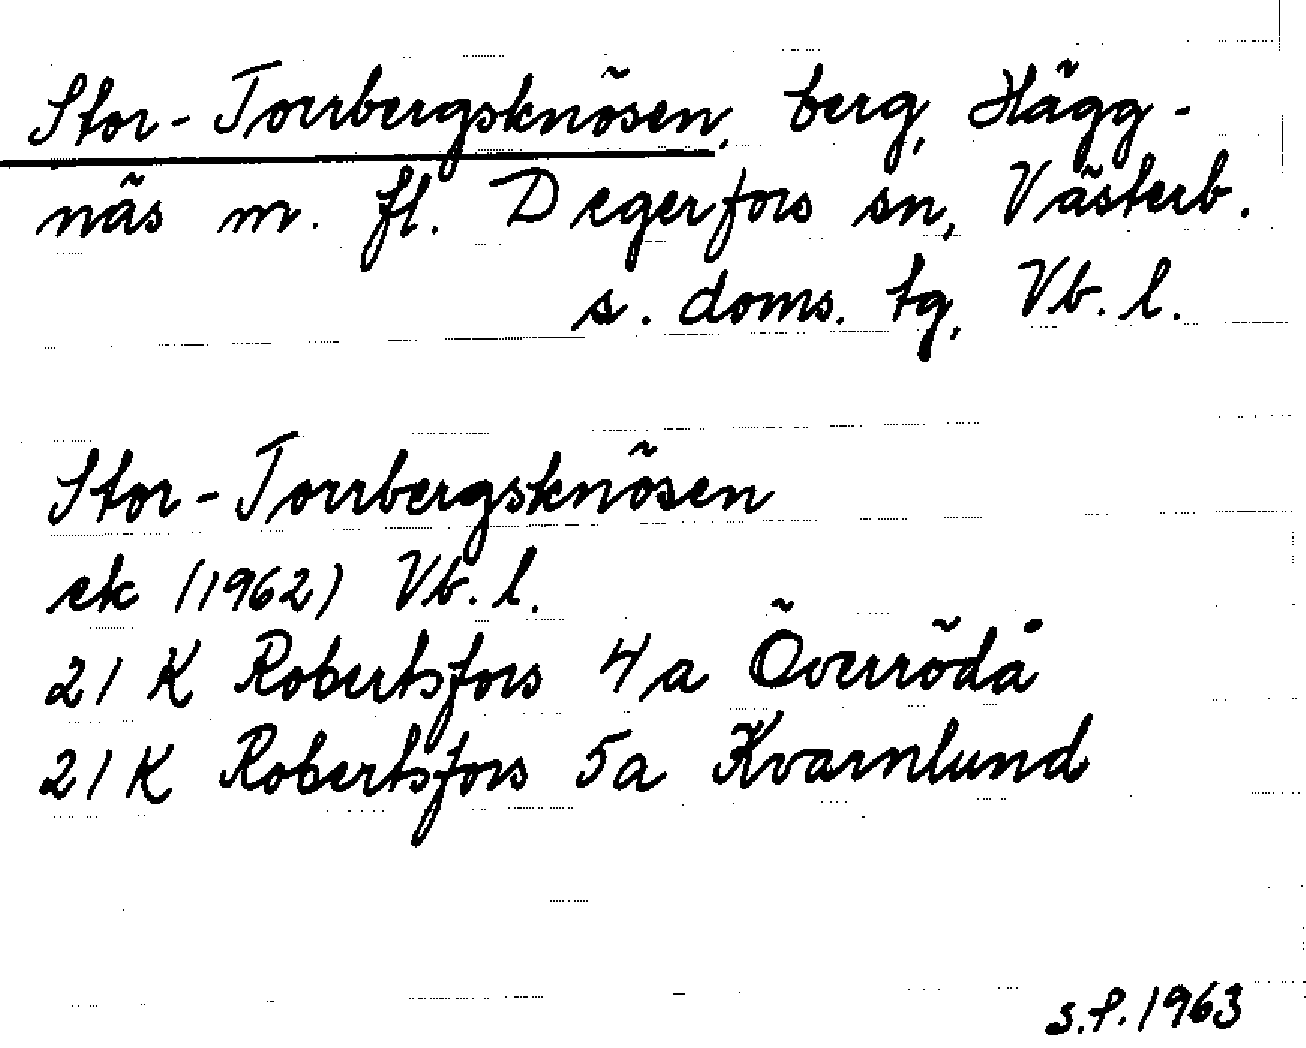 Stor-Torrbergsknösen, berg, Hägg-
näs m. fl. Degerfors sn, Västerb.
s. doms. tg, Vb. l.
Stor-Torrbergsknösen
ek (1962) Vb. l.
21 K Robertsfors 4a Överrödå
21 K Robertsfors 5a Kvarnlund
S.P. 1963